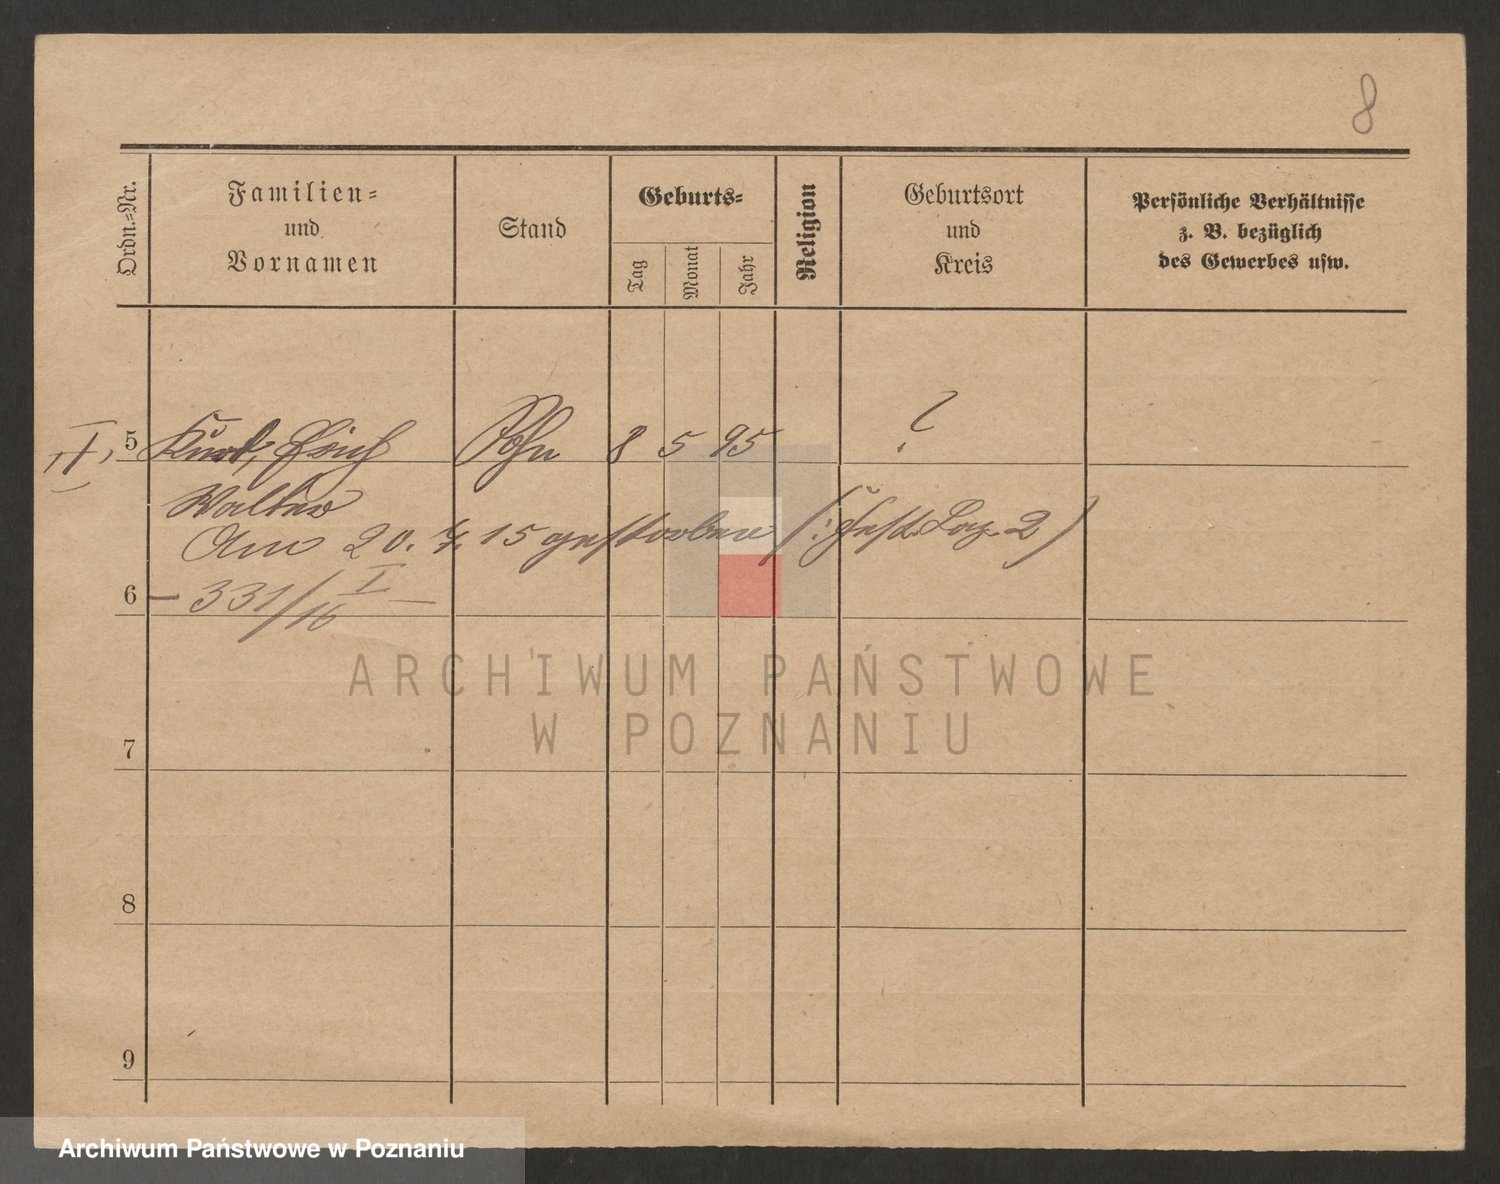 8
Ordn.=Nr.
Familien=
und
Vornamen
Stand
Geburts=
Tag
Monat
Jahr
Religion
Geburtsort
und
Kreis
Persönliche Verhältnisse
z. B. bezüglich
des Gewerbes usw.
5 Kurt, Erich Sohn 8 5 95 ?
Walter
Am 20. 7. 15 gestorben (: Fest. Laz. 2)
6 — 331/16 I —
ARCHIWUM PAŃSTWOWE
W POZNANIU
7
8
9
Archiwum Państwowe w Poznaniu